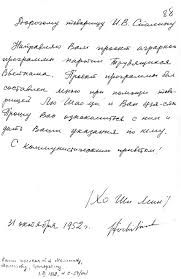 Дорогому товарищу И.В. Сталину
Направляю Вам проект аграрной
программы партии Трудящихся
Вьетнама. Проект программы был
составлен мною при помощи това-
рищей Лю Шао-ци и Ван Цзя-сян.
Прошу Вас ознакомиться с ним и
дать Ваши указания по нему.
С коммунистическим приветом!
/Хо Ши Мин/
31 октября 1952 г.